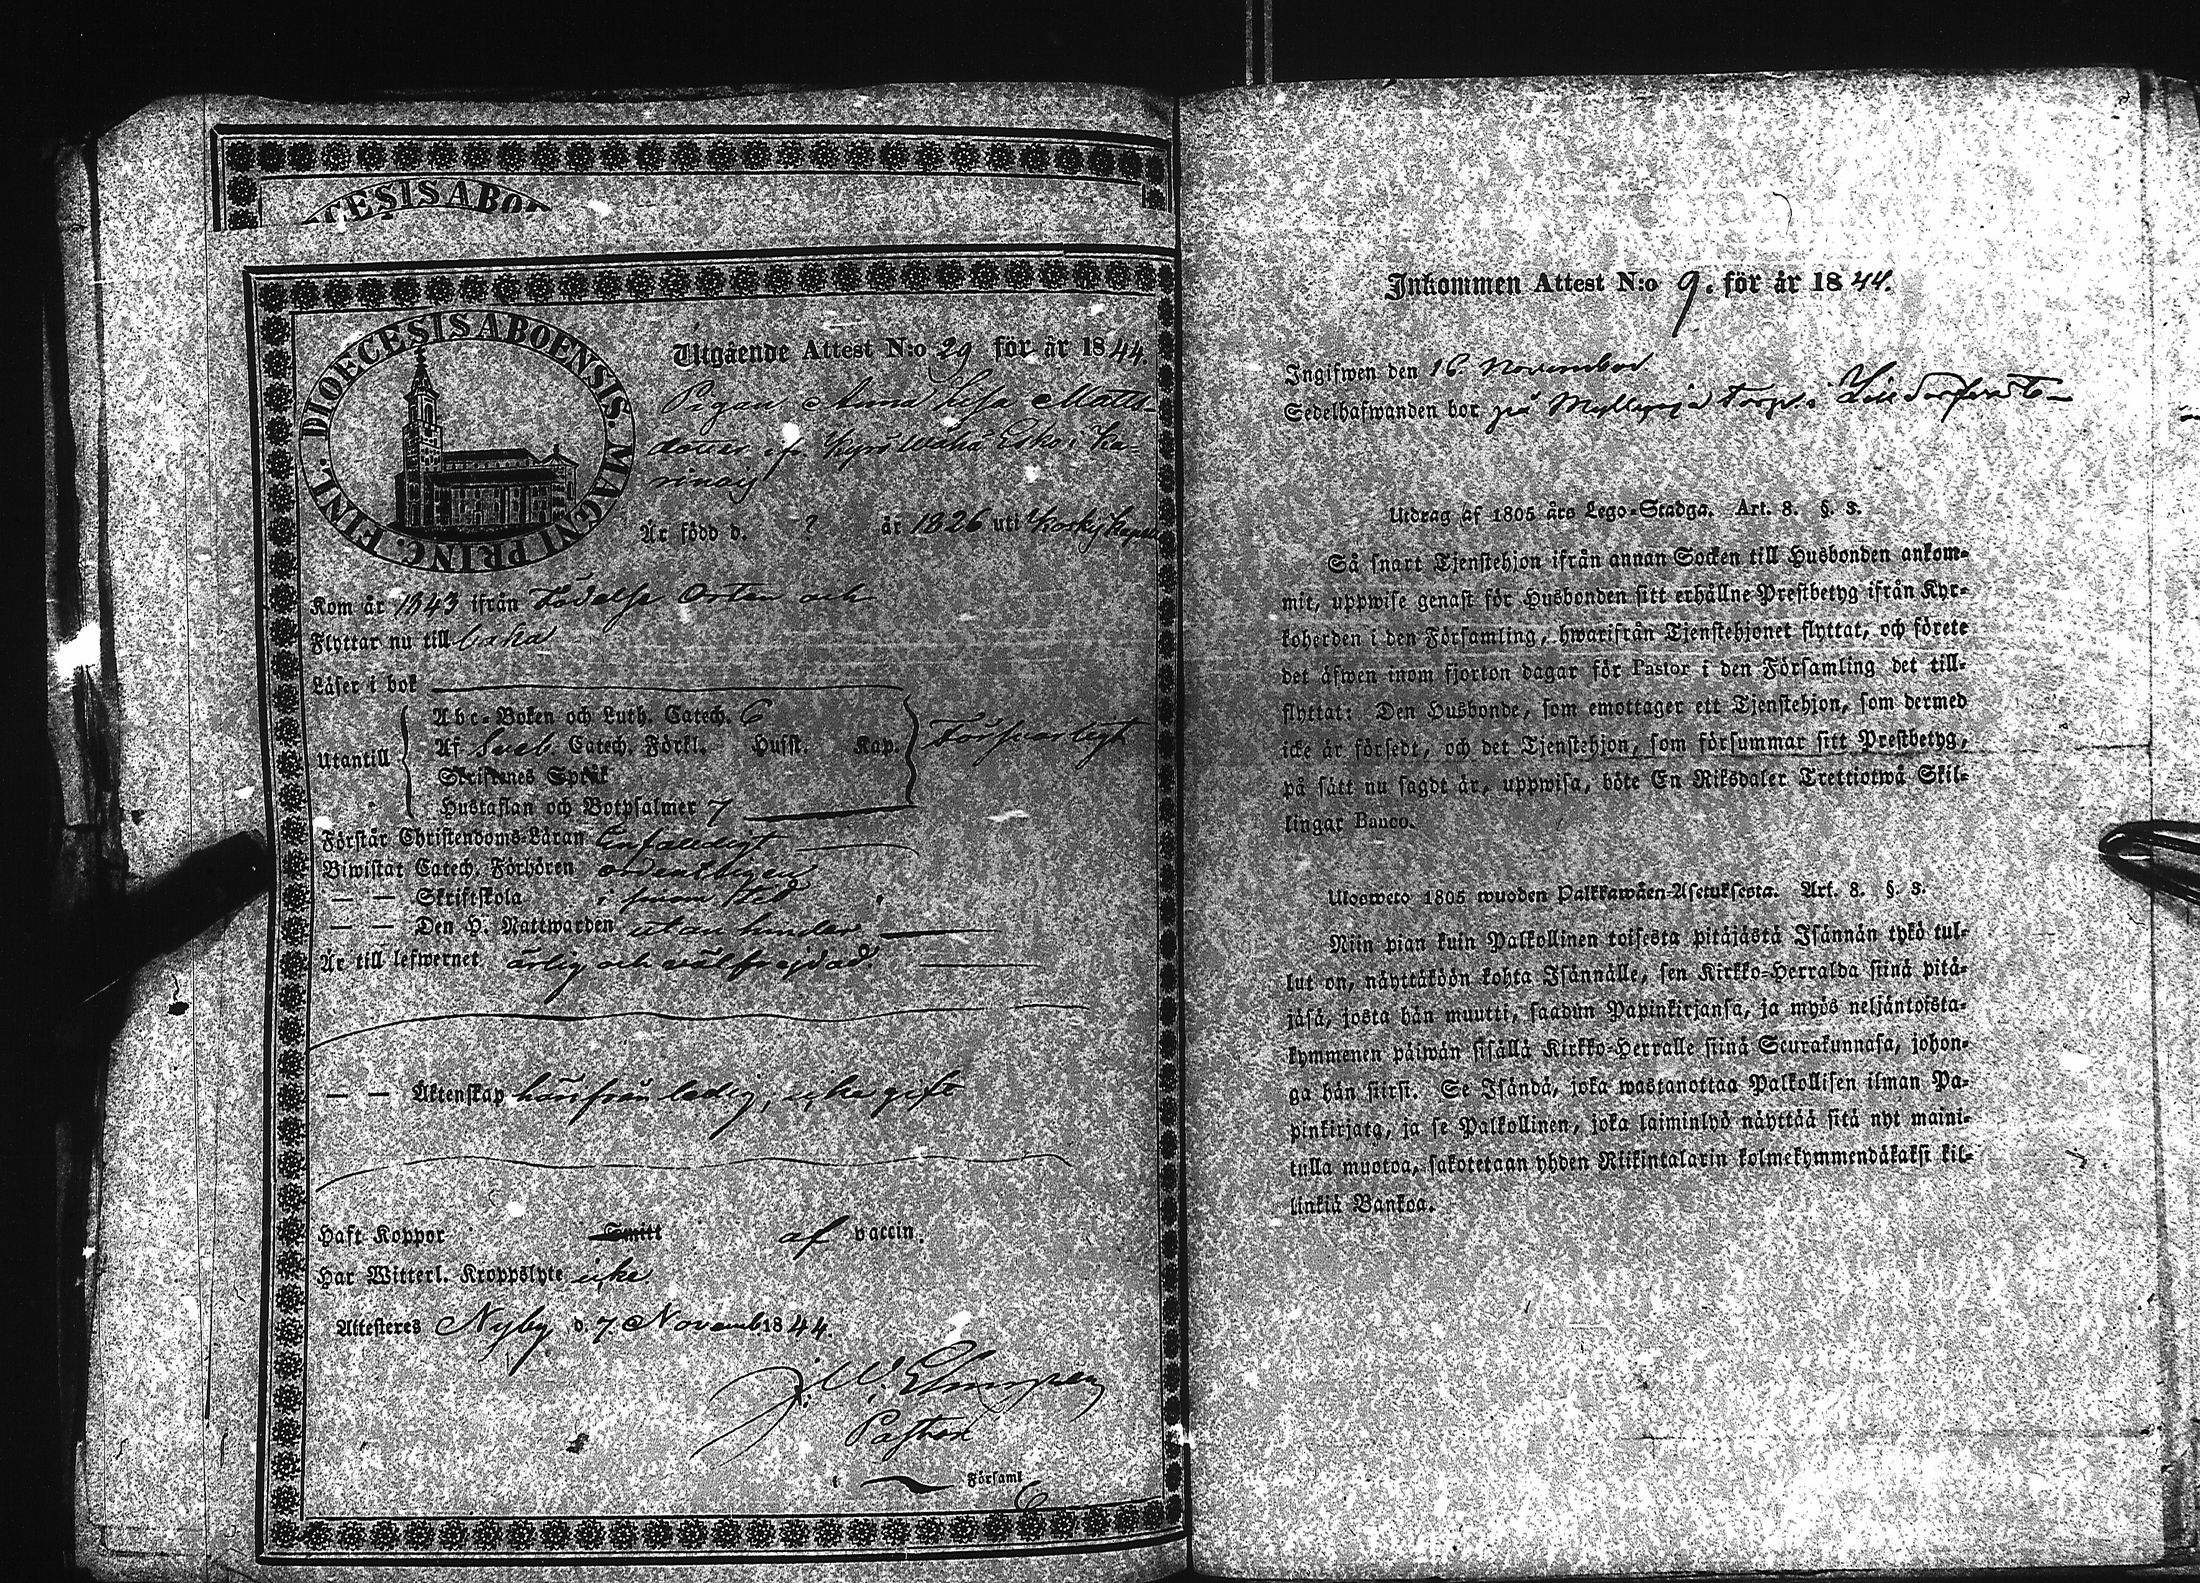 DIOECESIS ABOENSIS. MAGNI PRINC. FINL.
Utgående Attest N:o 29 för år 1844.
Pigan Anna Lisa Matts-
dotter ifr. Esko i Ka-
rinais
Är född d. ? år 1826 uti Koskis Kapell
Kom år 1843 ifrån Födelse Orten och
Flyttar nu till baka
Läser i bok
Utantill
Abc-Boken och Luth. Catech. 6
Af Sveb. Catech. Förkl. Hufst. Kap. Försvarligt
Skriftenes Språk
Hustaflan och Botpsalmer 7
Förstår Christendoms-Läran Enfaldigt
Biwistat Catech. Förhören ordentligen
— — Skriftskola i sinom tid
— — Den H. Nattwarden utan hinder
Är till lefwernet ärlig och välfrejdad.
— — Äktenskap härifrån ledig, icke gift
Haft Koppor Smitt af vaccin.
Har Witterl. Kroppslyte icke
Attesteres Nyby d. 7. Novemb. 1844.
J. W.
Pastor
i Församl.
Inkommen Attest N:o 9. för år 1844.
Ingifwen den 16. November
Sedelhafwanden bor på Torp i
Utdrag af 1805 års Lego-Stadga. Art. 8. §. 3.
Så snart Tjenstehjon ifrån annan Socken till Husbonden ankom-
mit, uppwise genast för Husbonden sitt erhållne Prestbetyg ifrån Kyr-
koherden i den Församling, hwarifrån Tjenstehjonet flyttat, och förete
det äfwen inom fjorton dagar för Pastor i den Församling det till-
flyttat: Den Husbonde, som emottager ett Tjenstehjon, som dermed
icke är försedt, och det Tjenstehjon, som försummar sitt Prestbetyg,
på sätt nu sagdt är, uppwisa, böte En Riksdaler Trettiotwå Skil-
lingar Banco.
Ulosweto 1805 wuoden Palkkawäen-Asetuksesta. Art. 8. §. 3.
Niin pian kuin Palkollinen toisesta pitäjästä Isännän tykö tul-
lut on, näyttäköön kohta Isännälle, sen Kirkko-Herralda siinä pitä-
jäsä, josta hän muutti, saadun Papinkirjansa, ja myös neljäntoista-
kymmenen päiwän sisällä Kirkko-Herralle siinä Seurakunnasa, johon-
ga hän siirsi. Se Isändä, joka wastanottaa Palkollisen ilman Pa-
pinkirjata, ja se Palkollinen, joka laiminlyö näyttää sitä nyt maini-
tulla muotoa, sakotetaan yhden Riikintalarin kolmekymmendäkaksi kil-
linkiä Bankoa.